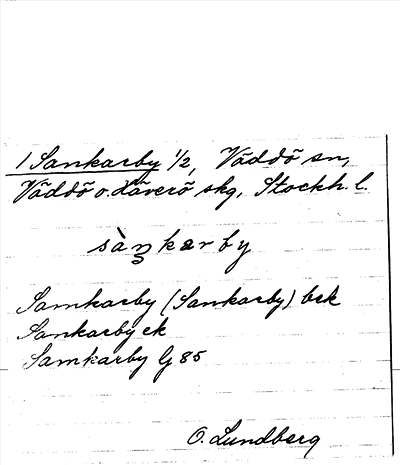 1 Sankarby 1/2, Väddö sn,
Väddö o. Häverö skg, Stockh. l.
sàn̡karby
Samkarby (Sankarby) bek
Sankarby ek
Samkarby Gj 85
O. Lundberg